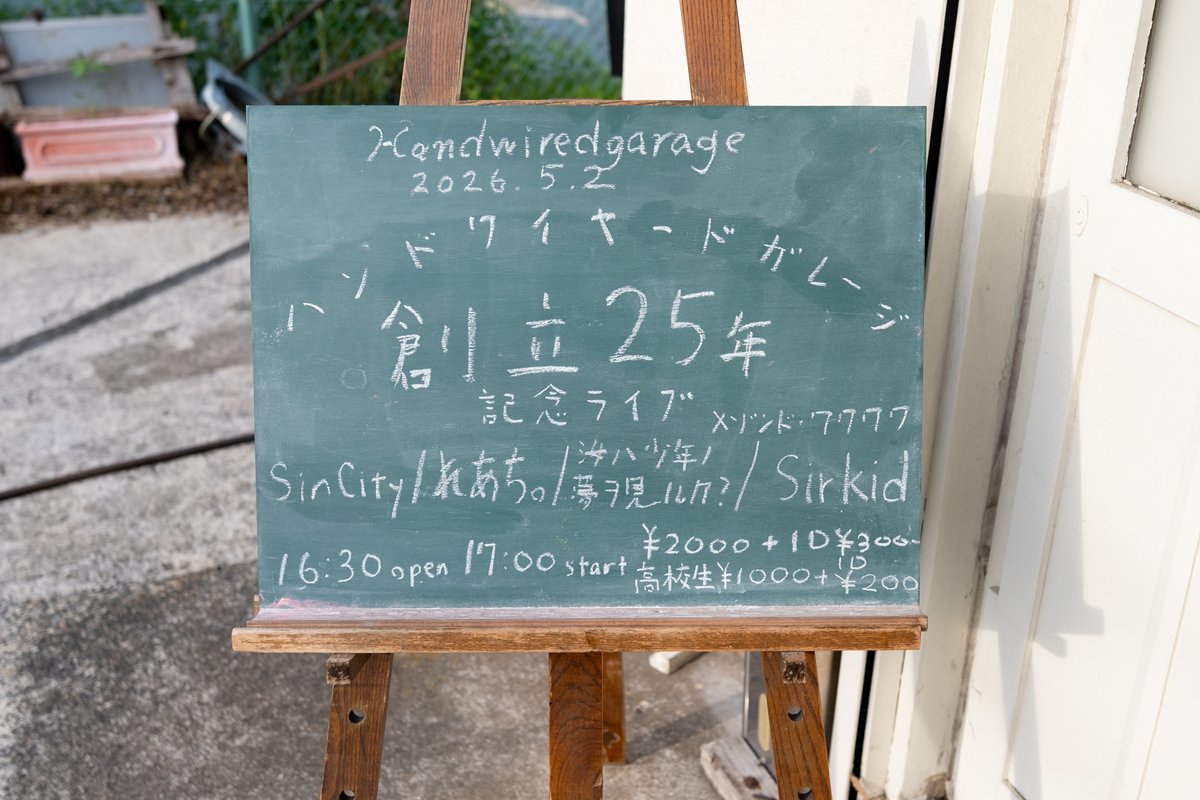 Handwiredgarage
2026.5.2
ハンドワイヤードガレージ
創立25年
記念ライブ
メゾンド・ワワワワ
SinCity/れあち。/渋ハ少年ノ夢ヲ見ルカ?/Sirkid
16:30 open 17:00 start
¥2000+1D¥300-
高校生¥1000+1D¥200